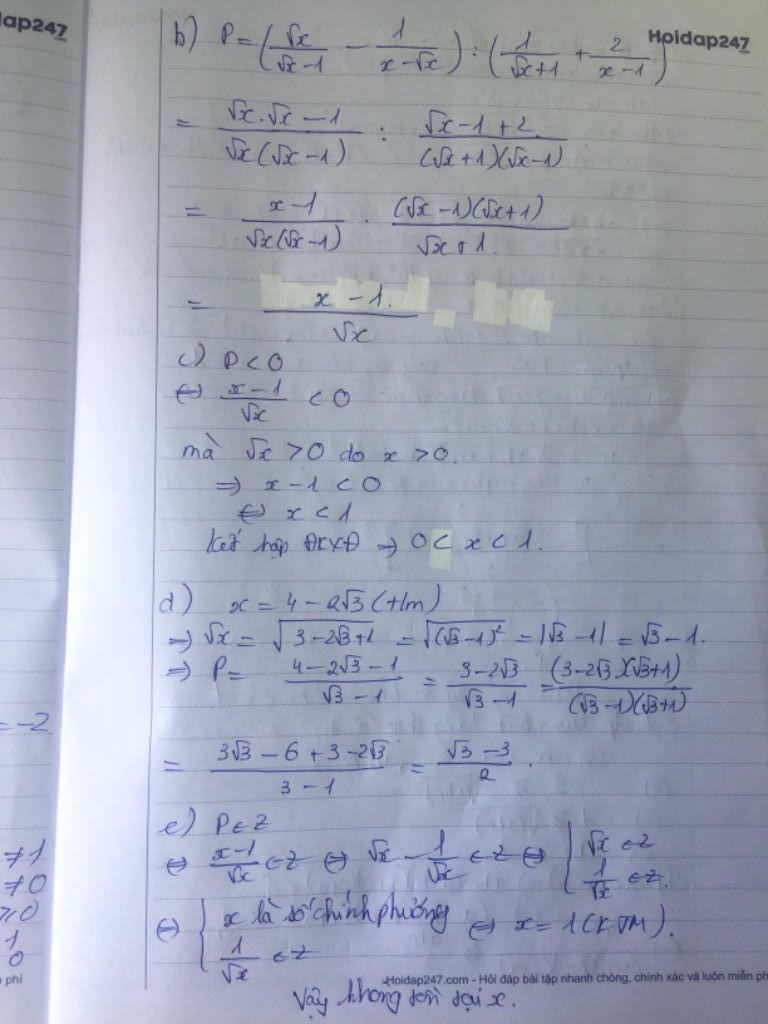 dap247
Hoidap247
b) P = (√x/(√x-1) - 1/(x-√x)) : (1/(√x+1) + 2/(x-1))
= (√x.√x - 1)/(√x(√x-1)) : (√x-1+2)/((√x+1)(√x-1))
= (x-1)/(√x(√x-1)) . ((√x-1)(√x+1))/(√x+1).
= (x-1.)/√x
c) P < 0
⇔ (x-1)/√x < 0
mà √x > 0 do x > 0.
⇒ x - 1 < 0
⇔ x < 1
Kết hợp ĐKXĐ ⇒ 0 < x < 1.
d) x = 4 - 2√3 (t/m)
⇒ √x = √(3-2√3+1) = √((√3-1)²) = |√3-1| = √3-1.
⇒ P = (4-2√3-1)/(√3-1) = (3-2√3)/(√3-1) = ((3-2√3)(√3+1))/((√3-1)(√3+1))
= (3√3-6+3-2√3)/(3-1) = (√3-3)/2.
e) P ∈ Z
⇔ (x-1)/√x ∈ Z ⇔ √x - 1/√x ∈ Z ⇔ { √x ∈ Z
1/√x ∈ Z.
⇔ { x là số chính phương
1/√x ∈ Z ⇔ x = 1 (KTM).
Hoidap247.com - Hỏi đáp bài tập nhanh chóng, chính xác và luôn miễn ph
Vậy không tồn tại x.
= -2
≠1
≠0
1
0
phí